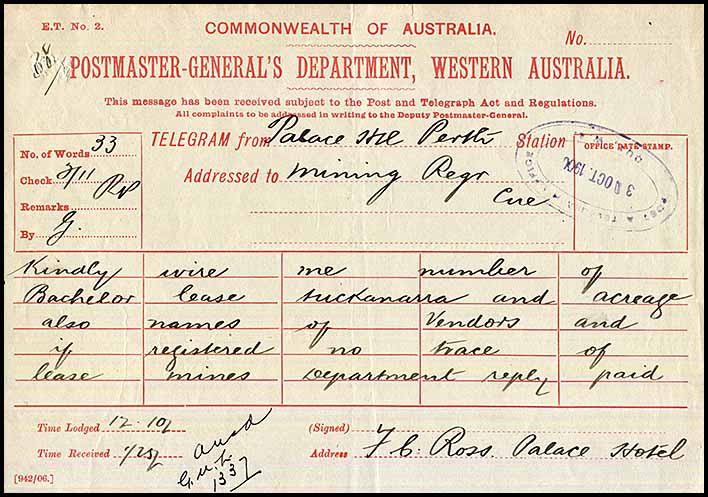 E.T. No. 2.
COMMONWEALTH OF AUSTRALIA.
No.
POSTMASTER-GENERAL'S DEPARTMENT, WESTERN AUSTRALIA.
This message has been received subject to the Post and Telegraph Act and Regulations.
All complaints to be addressed in writing to the Deputy Postmaster-General.
No. of Words 33
Check 2/11 RP
Remarks
By G.
TELEGRAM from Palace Htl Perth Station
Addressed to Mining Regr
Cue
OFFICE DATE STAMP.
30 OCT 190
Kindly wire me number of
Bachelor lease tuckanarra and acreage
also names of Vendors and
if registered no trace of
lease mines Department reply paid
Time Lodged 12.10
Time Received 1/25
Ansd
1337
(Signed)
Address F C. Ross. Palace Hotel
[942/06.]